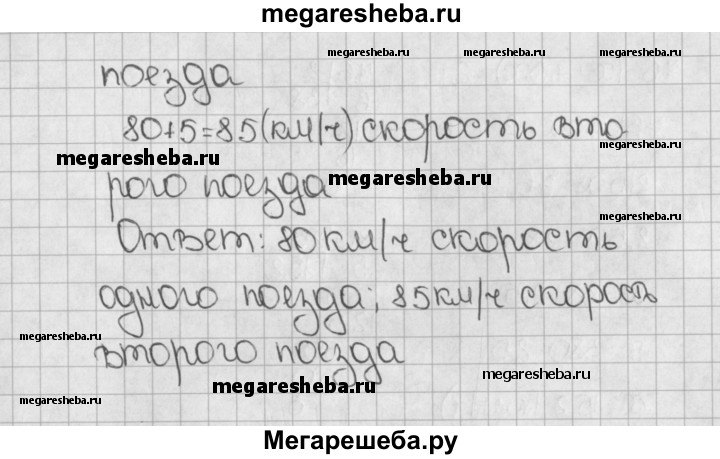 megaresheba.ru
megaresheba.ru megaresheba.ru megaresheba.ru
поезда
80+5=85(км/ч) скорость вто
megaresheba.ru
рого поезда megaresheba.ru
Ответ: 80 км/ч скорость
одного поезда; 85км/ч скорость
megaresheba.ru
второго поезда
megaresheba.ru megaresheba.ru
megaresheba.ru
Мегарешеба.ру